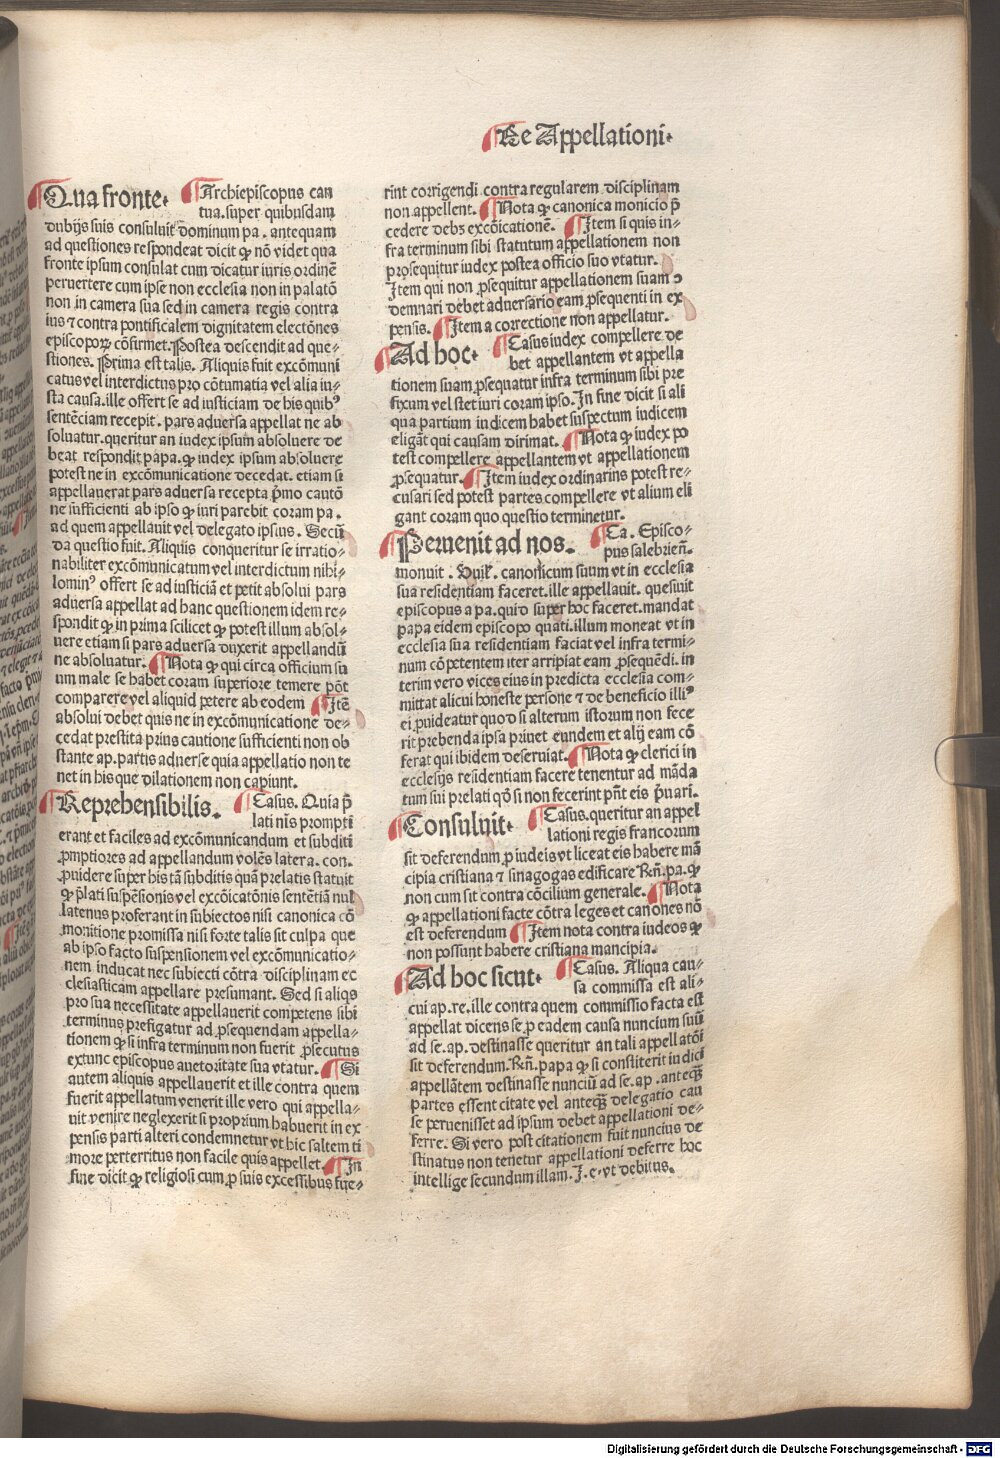 De Appellationi.
Qua fronte. Archiepiscopus can
tua. super quibusdam
dubijs suis consuluit dominum pa. antequam
ad questiones respondeat dicit ꝙ nō videt qua
fronte ipsum consulat cum dicatur iuris ordinē
peruertere cum ipse non ecclesia non in palatō
non in camera sua sed in camera regis contra
ius ⁊ contra pontificalem dignitatem electōnes
episcoporꝝ cōfirmet. Postea descendit ad que⸗
stiones. Prima est talis. Aliquis fuit excōmuni
catus vel interdictus pro cōtumatia vel alia iu⸗
sta causa. ille offert se ad iusticiam de his quibꝰ
sentēciam recepit. pars aduersa appellat ne ab
soluatur. queritur an iudex ipsum absoluere de
beat respondit papa. ꝙ iudex ipsum absoluere
potest ne in excōmunicatione decedat. etiam si
appellauerat pars aduersa recepta pͥmo cautō
ne sufficienti ab ipso ꝙ iuri parebit coram pa.
ad quem appellauit vel delegato ipsius. Secū
da questio fuit. Aliquis conqueritur se irratio⸗
nabiliter excōmunicatum vel interdictum nihi⸗
lominꝰ offert se ad iusticiā et petit absolui pars
aduersa appellat ad hanc questionem idem re⸗
spondit ꝙ in prima scilicet ꝙ potest illum absol⸗
uere etiam si pars aduersa duxerit appellandū
ne absoluatur. Nota ꝙ qui circa officium su
um male se habet coram superiore temere pōt
comparere vel aliquid petere ab eodem Itē
absolui debet quis ne in excōmunicatione de⸗
cedat prestita prius cautione sufficienti non ob
stante ap. partis aduerse quia appellatio non te
net in his que dilationem non capiunt.
Reprehensibilis. Casus. Quia p̄
lati nr̄is prompti
erant et faciles ad excōmunicandum et subditi
ꝓmptiores ad appellandum volēs latera. con.
ꝓuidere super his tā subditis quā prelatis statuit
ꝙ p̄lati suspēsionis vel excōicatōnis sentētiā nul
latenus proferant in subiectos nisi canonica cō
monitione promissa nisi forte talis sit culpa que
ab ipso facto suspensionem vel excōmunicatio⸗
nem inducat nec subiecti cōtra disciplinam ec
clesiasticam appellare presumant. Sed si aliqs
pro sua necessitate appellauerit competens sibi
terminus prefigatur ad ꝓsequendam appella⸗
tionem ꝙ si infra terminum non fuerit ꝓsecutus
extunc episcopus auctoritate sua vtatur. Si
autem aliquis appellauerit et ille contra quem
fuerit appellatum venerit ille vero qui appella⸗
uit venire neglexerit si proprium habuerit in ex
pensis parti alteri condemnetur vt hic saltem ti
more perterritus non facile quis appellet. In
fine dicit ꝙ religiosi cum ꝓ suis excessibus fue⸗
rint corrigendi contra regularem disciplinam
non appellent. Nota ꝙ canonica monicio p̄
cedere debꝫ excōicationē. Item si quis in⸗
fra terminum sibi statutum appellationem non
prosequitur iudex postea officio suo vtatur.
Item qui non ꝓsequitur appellationem suam ↄ
demnari debet aduersario eam ꝓsequenti in ex
pensis. Item a correctione non appellatur.
Ad hoc. Casus iudex compellere de
bet appellantem vt appella
tionem suam ꝓsequatur infra terminum sibi pre
fixum vel stet iuri coram ipso. In fine dicit si ali
qua partium iudicem habet suspectum iudicem
eligāt qui causam dirimat. Nota ꝙ iudex po
test compellere appellantem vt appellationem
ꝓsequatur. Item iudex ordinarius potest re⸗
cusari sed potest partes compellere vt alium eli
gant coram quo questio terminetur.
Peruenit ad nos. Ca. Episco⸗
pus salebrien̄.
monuit. canonicum suum vt in ecclesia
sua residentiam faceret. ille appellauit. quesiuit
episcopus a pa. quid super hoc faceret. mandat
papa eidem episcopo quati. illum moneat vt in
ecclesia sua residentiam faciat vel infra termi⸗
num cōpetentem iter arripiat eam ꝓsequēdi. in
terim vero vices eius in predicta ecclesia com⸗
mittat alicui honeste persone ⁊ de beneficio illiꝰ
ei ꝓuideatur quod si alterum istorum non fece
rit prebenda ipsa priuet eundem et alij eam cō
ferat qui ibidem deseruiat. Nota ꝙ clerici in
ecclesijs residentiam facere tenentur ad māda
tum sui prelati qd̄ si non fecerint pn̄t eis pͥuari.
Consuluit. Casus. queritur an appel
lationi regis francorum
sit deferendum ꝓ iudeis vt liceat eis habere mā
cipia cristiana ⁊ sinagogas edificare Rn̄. pa. ꝙ
non cum sit contra cōcilium generale. Nota
ꝙ appellationi facte cōtra leges et canones nō
est deferendum Item nota contra iudeos ꝙ
non possunt habere cristiana mancipia.
Ad hoc sicut. Casus. Aliqua cau⸗
sa commissa est ali⸗
cui ap. re. ille contra quem commissio facta est
appellat dicens se ꝓ eadem causa nuncium suū
ad se. ap. destinasse queritur an tali appellatōi
sit deferendum. Rn̄. papa ꝙ si constiterit iudici
appellātem destinasse nunciū ad se. ap. anteqꝫ
partes essent citate vel anteqꝫ delegatio cau
se peruenisset ad ipsum debet appellationi de⸗
ferre. Si vero post citationem fuit nuncius de
stinatus non tenetur appellationi deferre hoc
intellige secundum illam. I. e. vt debitus.
Digitalisierung gefördert durch die Deutsche Forschungsgemeinschaft - DFG